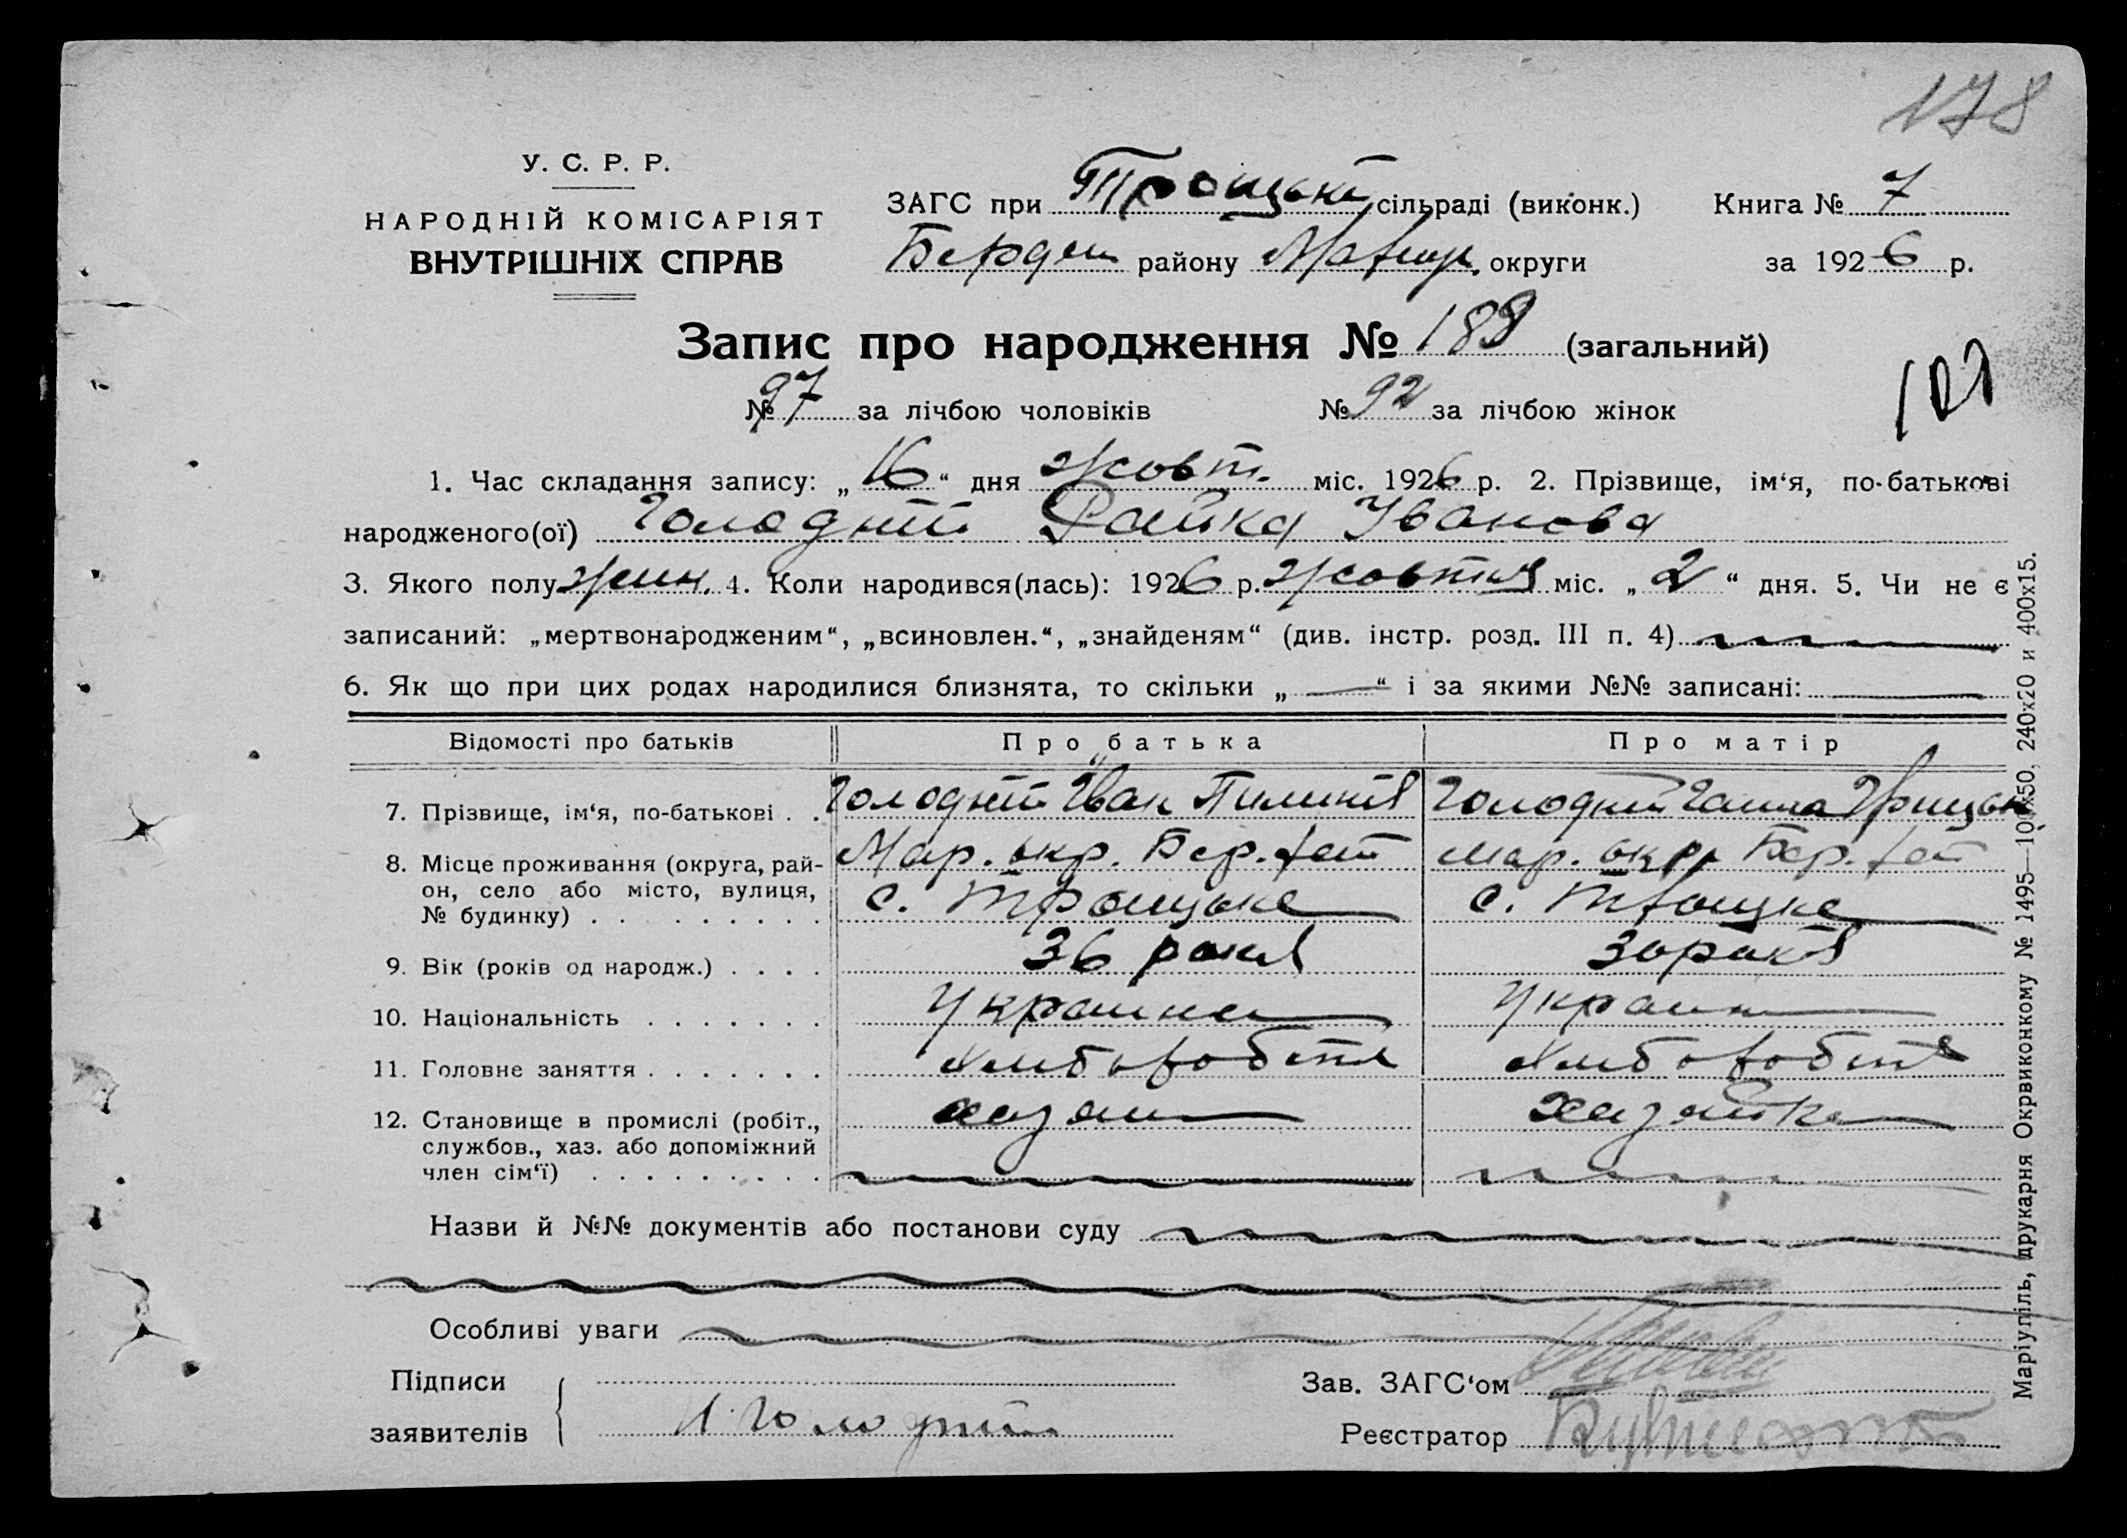 178
У. С. Р. Р.
НАРОДНІЙ КОМІСАРІЯТ
ВНУТРІШНІХ СПРАВ
ЗАГС при Троицькі сільраді (виконк.) Книга № 7
Бердян району Маріуп. округи за 1926 р.
Запис про народження № 189 (загальний)
№ 97 за лічбою чоловіків № 92 за лічбою жінок
1. Час складання запису: „16“ дня жовт. міс. 1926 р. 2. Прізвище, ім‘я, по-батькові
народженого(ої) Голодній Райка Іванова
3. Якого полу жин. 4. Коли народився(лась): 1926 р. жовтня міс. „2“ дня. 5. Чи не є
записаний: „мертвонародженим“, „всиновлен.“, „знайденям“ (див. інстр. розд. III п. 4)
6. Як що при цих родах народилися близнята, то скільки „—“ і за якими №№ записані:
Відомості про батьків Про батька Про матір
7. Прізвище, ім‘я, по-батькові . . Голодній Іван Пилипів Голодній Ганна Грицьк
8. Місце проживання (округа, рай- Мар. окр. Бер. рай мар. окр. Бер. рай
он, село або місто, вулиця, с. Троицьке с. Троицке
№ будинку) . . . . . . . . .
9. Вік (років од народж.) . . . . 36 років 30 років
10. Національність . . . . . . . Україне Україн
11. Головне заняття . . . . . . . хлиборобстя хлиборобств
12. Становище в промислі (робіт., хазяи хазяйка
службов., хаз. або допоміжний
член сім‘ї) . . . . . . . . .
Назви й №№ документів або постанови суду
Особливі уваги
Підписи
заявителів И Голодний
Зав. ЗАГС‘ом
Реєстратор
Маріупіль, друкарня Окрвиконкому № 1495—100х50, 240х20 и 400х15.